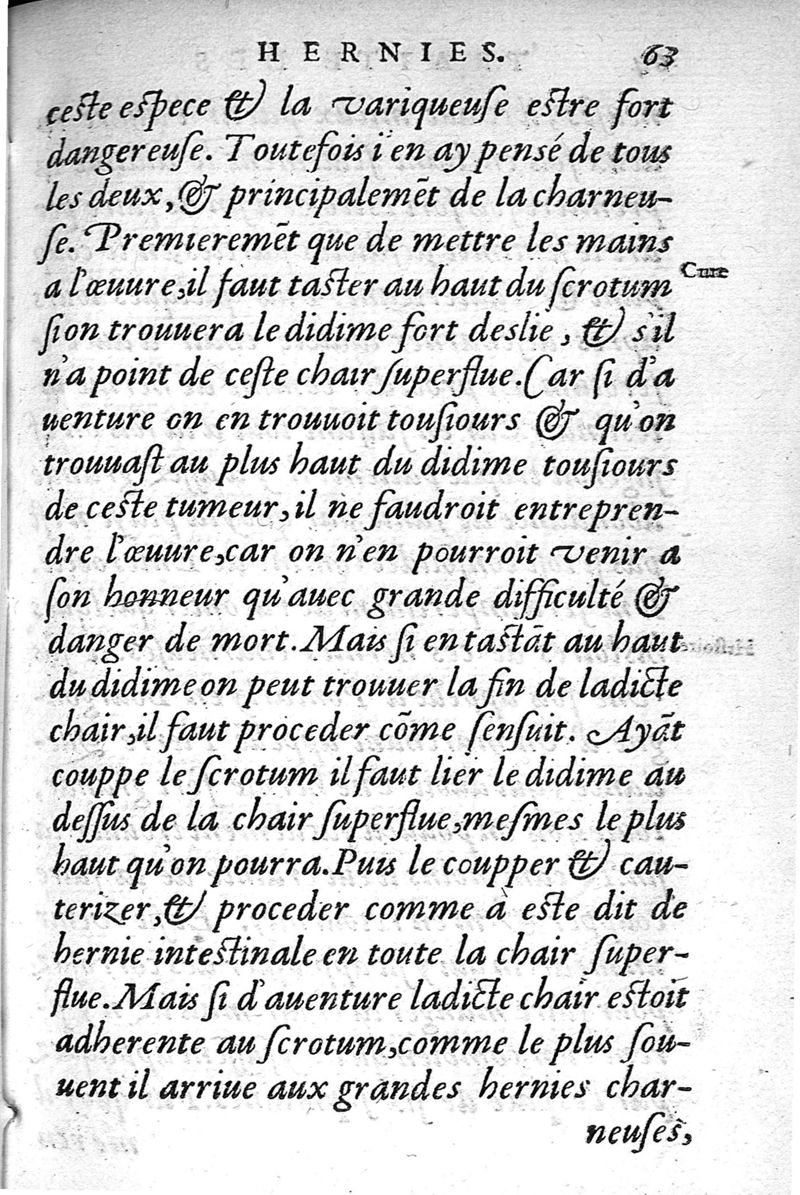 HERNIES. 63
ceste espece & la variqueuſe estre fort
dangereuſe. Toutefois i'en ay pensé de tous
les deux, & principalemẽt de la charneu-
ſe. Premieremẽt que de mettre les mains
a l'œuure, il faut taster au haut du ſcrotum
Cure
ſi on trouuera le didime fort deslie, & s'il
n'a point de ceſte chair ſuperflue. Car ſi d'a
uenture on en trouuoit touſiours & qu'on
trouuaſt au plus haut du didime touſiours
de ceste tumeur, il ne faudroit entrepren-
dre l'œuure, car on n'en pourroit venir a
ſon honneur qu'auec grande difficulté &
danger de mort. Mais ſi en tastãt au haut
du didime on peut trouuer la fin de ladicte
chair, il faut proceder cõme ſenſuit. Ayãt
couppe le ſcrotum il faut lier le didime au
deſſus de la chair ſuperflue, meſmes le plus
haut qu'on pourra. Puis le coupper & cau-
terizer, & proceder comme à este dit de
hernie intestinale en toute la chair ſuper-
flue. Mais ſi d'auenture ladicte chair estoit
adherente au ſcrotum, comme le plus ſou-
uent il arriue aux grandes hernies char-
neuſes,